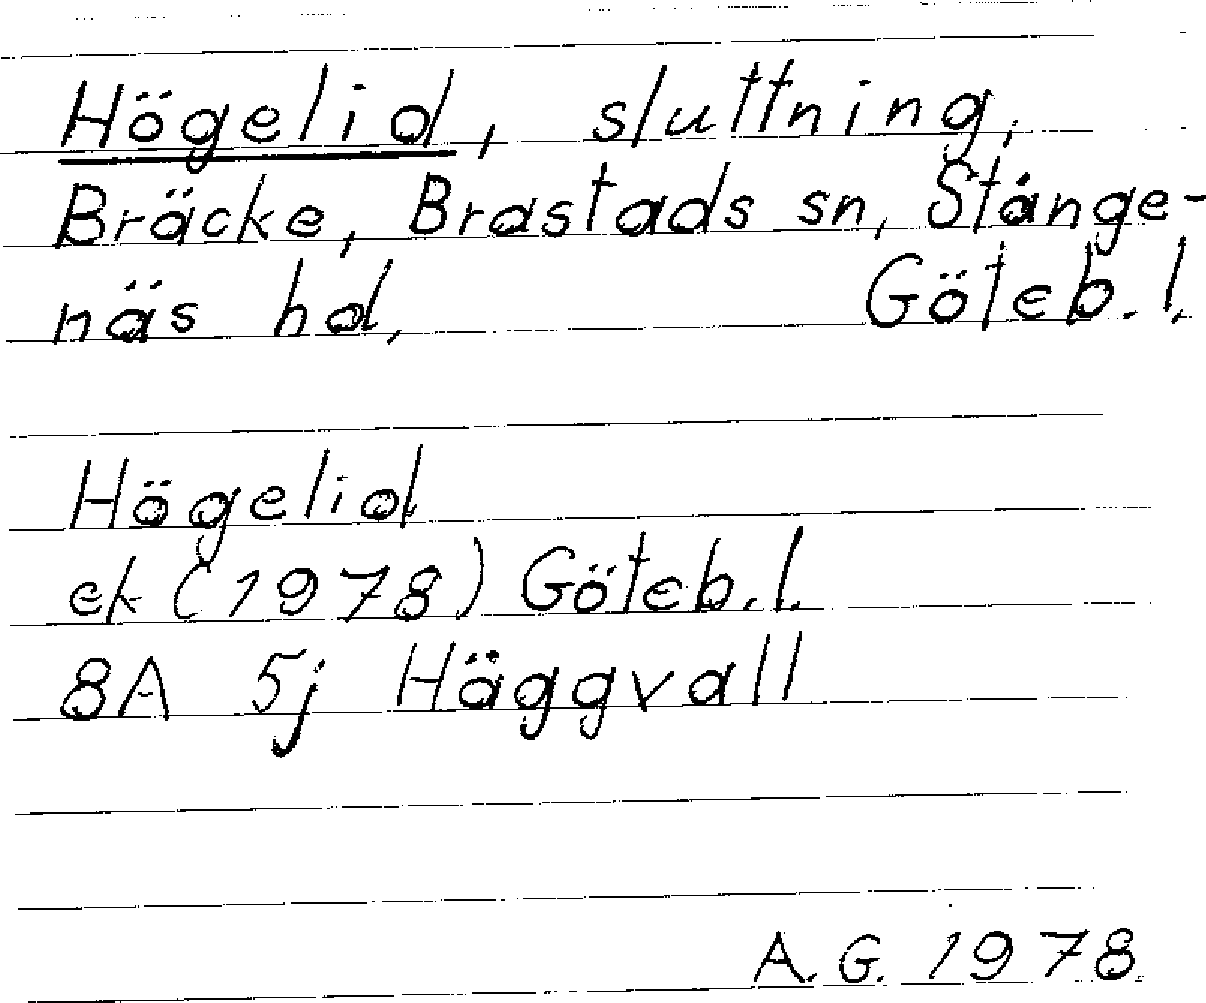 Högelid, sluttning,
Bräcke, Brastads sn, Stånge-
näs hd, Göteb. l.
Högelid
ek (1978) Göteb. l.
8A 5j Häggvall
A. G. 1978